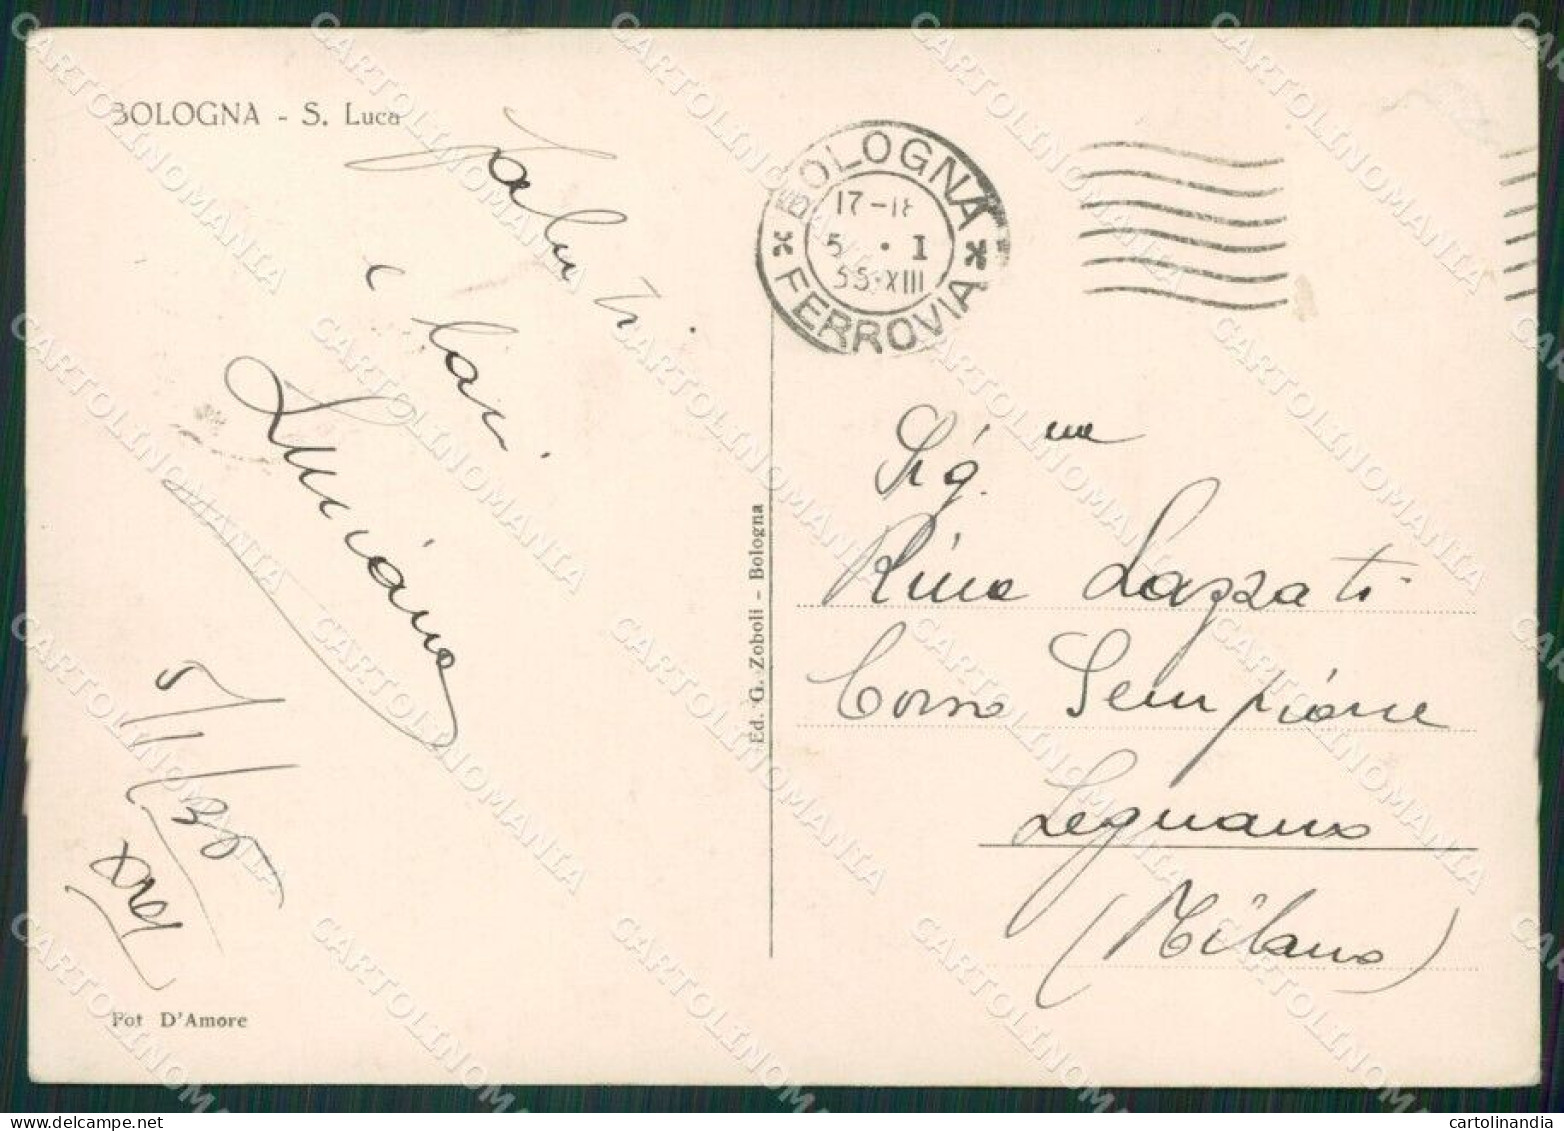 BOLOGNA - S. Luca
Saluti
e baci
Luciano
5/1/35
XIII
Fot D'Amore
Ed. G. Zoboli - Bologna
BOLOGNA
17-18
5 · I
35·XIII
FERROVIA
Sig.na
Rina Lazzati
Corso Sempione
Legnano
(Milano)
CARTOLINOMANIA
www.delcampe.net
cartolinandia